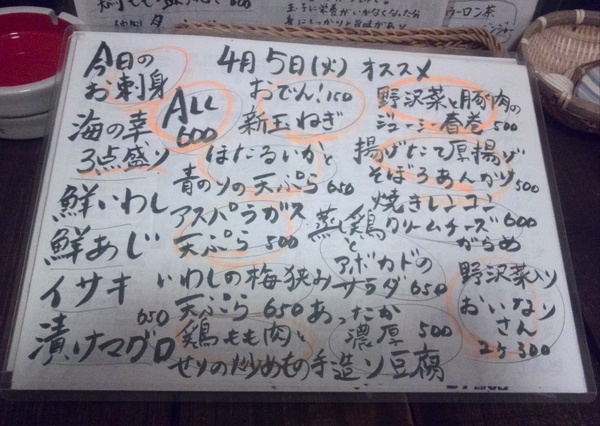 4月5日(火) オススメ
今日の
お刺身
ALL
600
海の幸
3点盛り
鮮いわし
鮮あじ
イサキ
650
漬けマグロ
おでん!150
新玉ねぎ
ほたるいかと
青のりの天ぷら 650
アスパラガス
天ぷら 500
いわしの梅挟み
天ぷら 650
鶏もも肉と
せりの炒めもの
野沢菜と豚肉の
ジューシー春巻 500
揚げたて厚揚げ
そぼろあんかけ 500
焼きレンコン
クリームチーズ 600
からめ
蒸し鶏と
アボカドの
サラダ 650
あったか
濃厚 500
手造り豆腐
野沢菜入り
おいなり
さん
2ケ 300
ウーロン茶